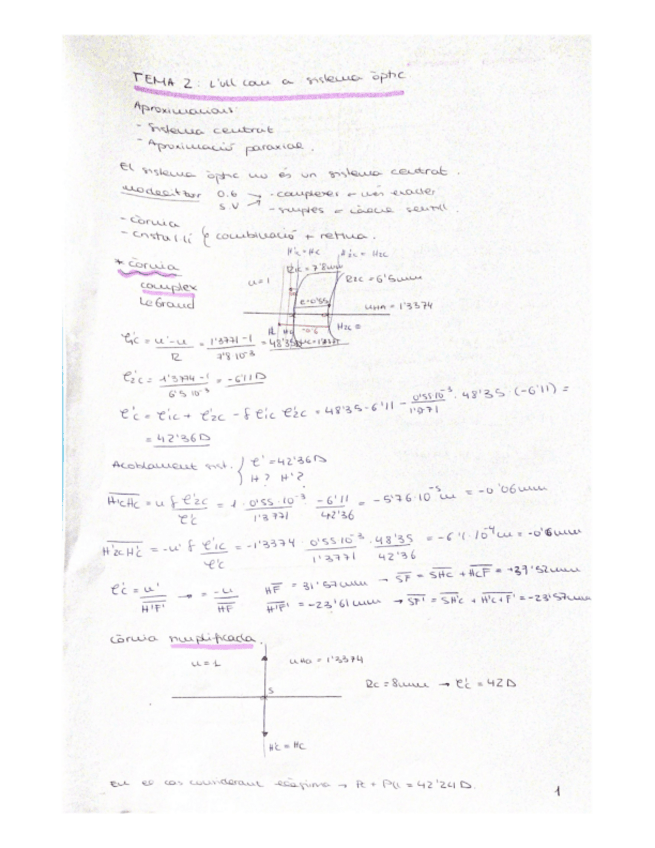 TEMA 2: L'ull com a sistema òptic
Aproximacions:
- Sistema centrat
- Aproximació paraxial.
El sistema òptic no és un sistema centrat.
- complexes + més exactes
- simples =
- Còrnia
- cristal·lí } combinació + retina.
* còrnia
complex
LeGrand
H'1c = H1c
H'2c = H2c
R1c = 7'8mm
R2c = 6'5mm
u=1
e=0'55
uHA = 1'3374
φ'1c = u'-u / R = 1'3771-1 / 7'8·10⁻³ = 48'35D
φ'2c = 1'3374-1' / 6'5·10⁻³ = -6'11D
φ'c = φ'1c + φ'2c - δ φ'1c φ'2c = 48'35-6'11 - 0'55·10⁻³ / 1'3771 · 48'35 · (-6'11) =
= 42'36D
Acoblament sist. { φ' = 42'36D
H? H'?
H1cHc = u δ φ'2c / φ'c = 1 · 0'55·10⁻³ / 1'3771 · -6'11 / 42'36 = -5'76·10⁻⁵m = -0'06mm
H'2cH'c = -u' δ φ'1c / φ'c = -1'3374 · 0'55·10⁻³ / 1'3771 · 48'35 / 42'36 = -6'1·10⁻⁴m = -0'6mm
φ'c = u' / H'F' → = -u / HF
HF = 31'57mm → SF = SHc + HcF = +31'52mm
H'F' = -23'61mm → SF' = SH'c + H'c+F' = -23'57mm
còrnia simplificada.
u=1
uHA = 1'3374
Rc = 8mm → φ'c = 42D
S
H'c = Hc
En el cas considerant làgrima → = 42'24D.
1